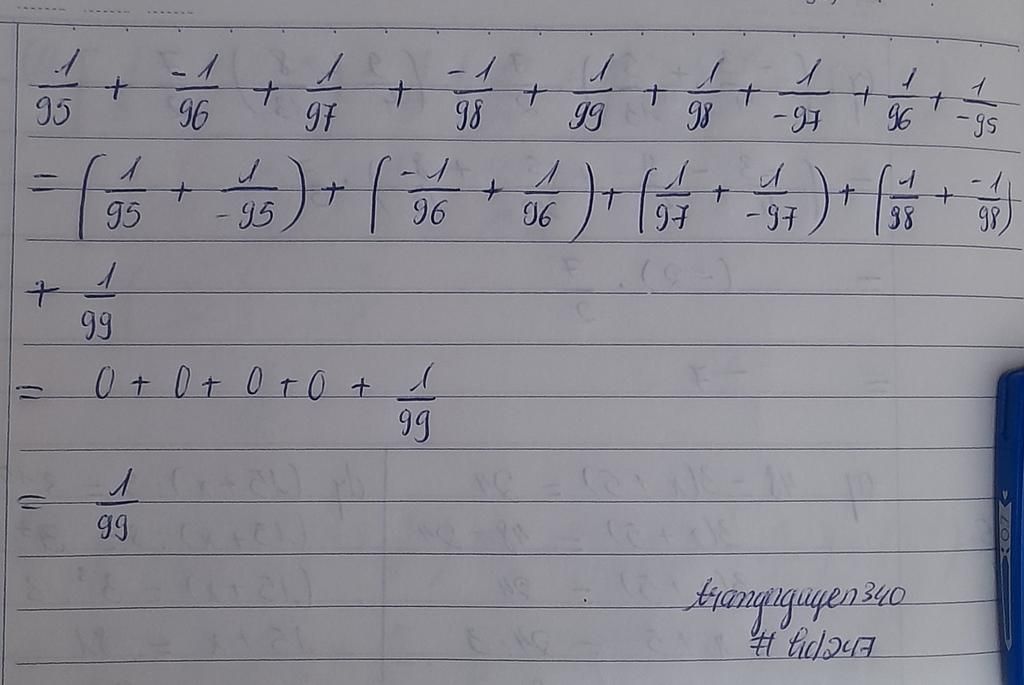 1/95 + -1/96 + 1/97 + -1/98 + 1/99 + 1/98 + 1/-97 + 1/96 + 1/-95
= (1/95 + 1/-95) + (-1/96 + 1/96) + (1/97 + 1/-97) + (1/98 + -1/98)
+ 1/99
= 0 + 0 + 0 + 0 + 1/99
= 1/99
trangnguyen340